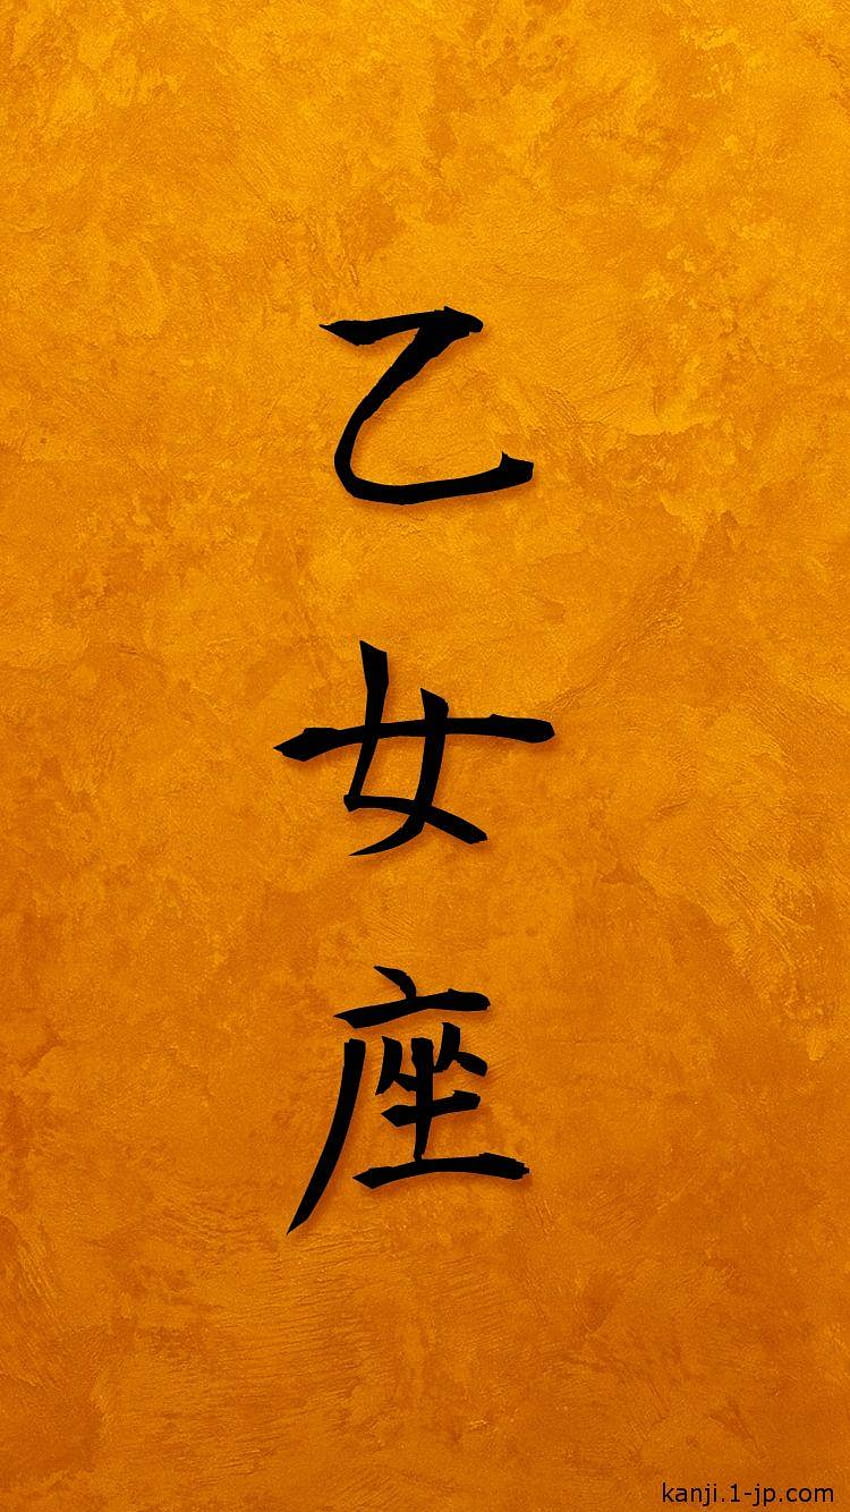 乙女座
kanji.1-jp.com